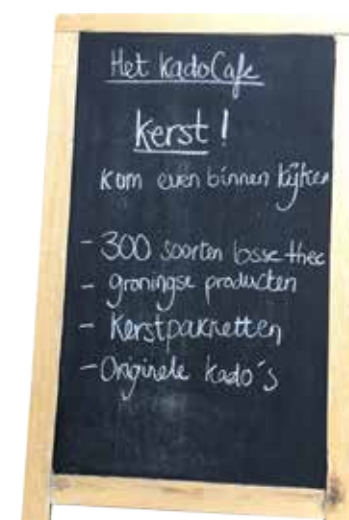 Het KadoCafe
Kerst!
Kom even binnen kijken
- 300 soorten losse thee
- groningse producten
- Kerstpakketten
- Originele kado's